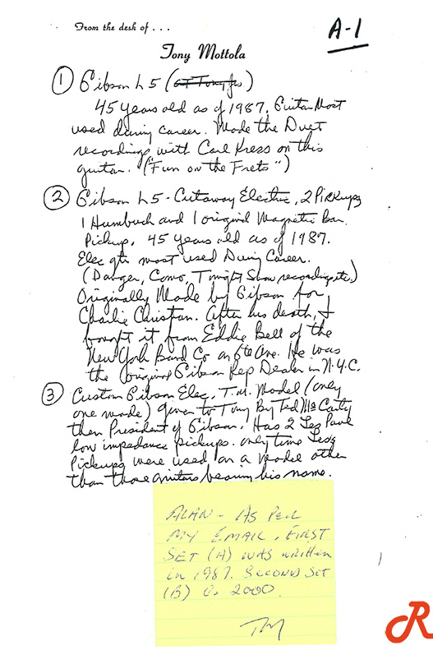 From the desk of . . .
A-1
Tony Mottola
① Gibson L5 (at Tony Jrs)
45 years old as of 1987, Guitar Most
used during career. Made the Duet
recordings with Carl Kress on this
guitar. ("Fun on the Frets")
② Gibson L5 - Cutaway Electric, 2 Pickups
1 Humbuck and 1 original Magnetic Bar
Pickup, 45 years old as of 1987.
Elec gtr most used During Career.
(Danger, Como, Tonight Show recordings etc.)
Originally Made by Gibson for
Charlie Christian. After his death, I
bought it from Eddie Bell of the
New York Band Co on 6th Ave. He was
the original Gibson Rep Dealer in N.Y.C.
③ Custom Gibson Elec, T.M. Model (only
one made) given to Tony By Ted McCarty
then President of Gibson. Has 2 Les Paul
low impedance pickups. only time Les's
Pickups were used on a model other
than those guitars bearing his name.
ALAN - AS PER
MY EMAIL, FIRST
SET (A) WAS WRITTEN
IN 1987. SECOND SET
(B) C. 2000.
TM
R